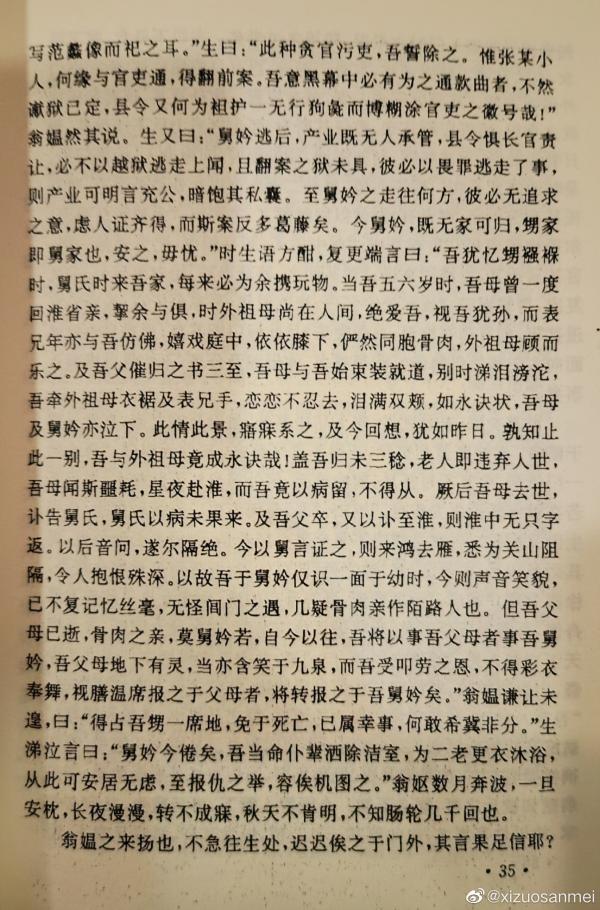 写范蠡像而祀之耳。”生曰：“此种贪官污吏，吾誓除之。惟张某小
人，何缘与官吏通，得翻前案。吾意黑幕中必有为之通款曲者，不然
谳狱已定，县令又何为袒护一无行狗彘而博糊涂官吏之徽号哉！”
翁媪然其说。生又曰：“舅妗逃后，产业既无人承管，县令惧长官责
让，必不以越狱逃走上闻，且翻案之狱未具，彼必以畏罪逃走了事，
则产业可明言充公，暗饱其私囊。至舅妗之走往何方，彼必无追求
之意，虑人证齐得，而斯案反多葛藤矣。今舅妗，既无家可归，甥家
即舅家也，安之，毋忧。”时生语方酣，复更端言曰：“吾犹忆甥襁褓
时，舅氏时来吾家，每来必为余携玩物。当吾五六岁时，吾母曾一度
回淮省亲，挈余与俱，时外祖母尚在人间，绝爱吾，视吾犹孙，而表
兄年亦与吾仿佛，嬉戏庭中，依依膝下，俨然同胞骨肉，外祖母顾而
乐之。及吾父催归之书三至，吾母与吾始束装就道，别时涕泪滂沱，
吾牵外祖母衣裾及表兄手，恋恋不忍去，泪满双颊，如永诀状，吾母
及舅妗亦泣下。此情此景，寤寐系之，及今回想，犹如昨日。孰知止
此一别，吾与外祖母竟成永诀哉！盖吾归未三稔，老人即违弃人世，
吾母闻斯噩耗，星夜赴淮，而吾竟以病留，不得从。厥后吾母去世，
讣告舅氏，舅氏以病未果来。及吾父卒，又以讣至淮，则淮中无只字
返。以后音问，遂尔隔绝。今以舅言证之，则来鸿去雁，悉为关山阻
隔，令人抱恨殊深。以故吾于舅妗仅识一面于幼时，今则声音笑貌，
已不复记忆丝毫，无怪闾门之遇，几疑骨肉亲作陌路人也。但吾父
母已逝，骨肉之亲，莫舅妗若，自今以往，吾将以事吾父母者事吾舅
妗，吾父母地下有灵，当亦含笑于九泉，而吾受叩劳之恩，不得彩衣
奉舞，视膳温席报之于父母者，将转报之于吾舅妗矣。”翁媪谦让未
遑，曰：“得占吾甥一席地，免于死亡，已属幸事，何敢希冀非分。”生
涕泣言曰：“舅妗今倦矣，吾当命仆辈洒除洁室，为二老更衣沐浴，
从此可安居无虑，至报仇之举，容俟机图之。”翁妪数月奔波，一旦
安枕，长夜漫漫，转不成寐，秋天不肯明，不知肠轮几千回也。
翁媪之来扬也，不急往生处，迟迟俟之于门外，其言果足信耶？
·35·
@xizuosanmei